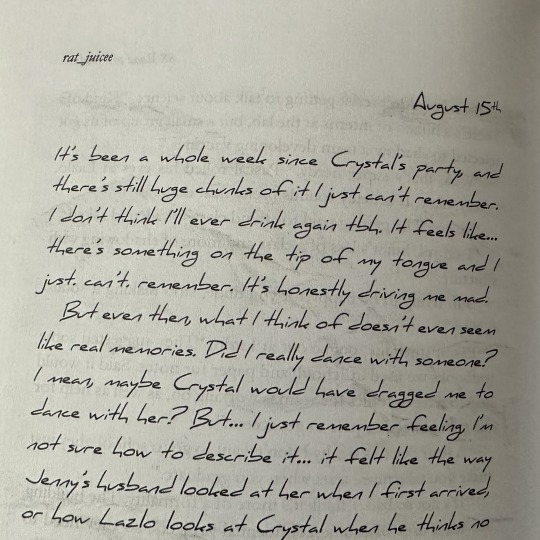 rat_juicee
August 15th
It's been a whole week since Crystal's party, and
there's still huge chunks of it I just can't remember.
I don't think I'll ever drink again tbh. It feels like...
there's something on the tip of my tongue and I
just. can't. remember. It's honestly driving me mad.
But even then, what I think of doesn't even seem
like real memories. Did I really dance with someone?
I mean, maybe Crystal would have dragged me to
dance with her? But... I just remember feeling, I'm
not sure how to describe it... it felt like the way
Jenny's husband looked at her when I first arrived,
or how Lazlo looks at Crystal when he thinks no